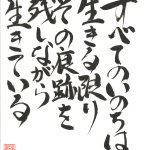 すべてのいのちは
生きる限り
その痕跡を
残しながら
生きている